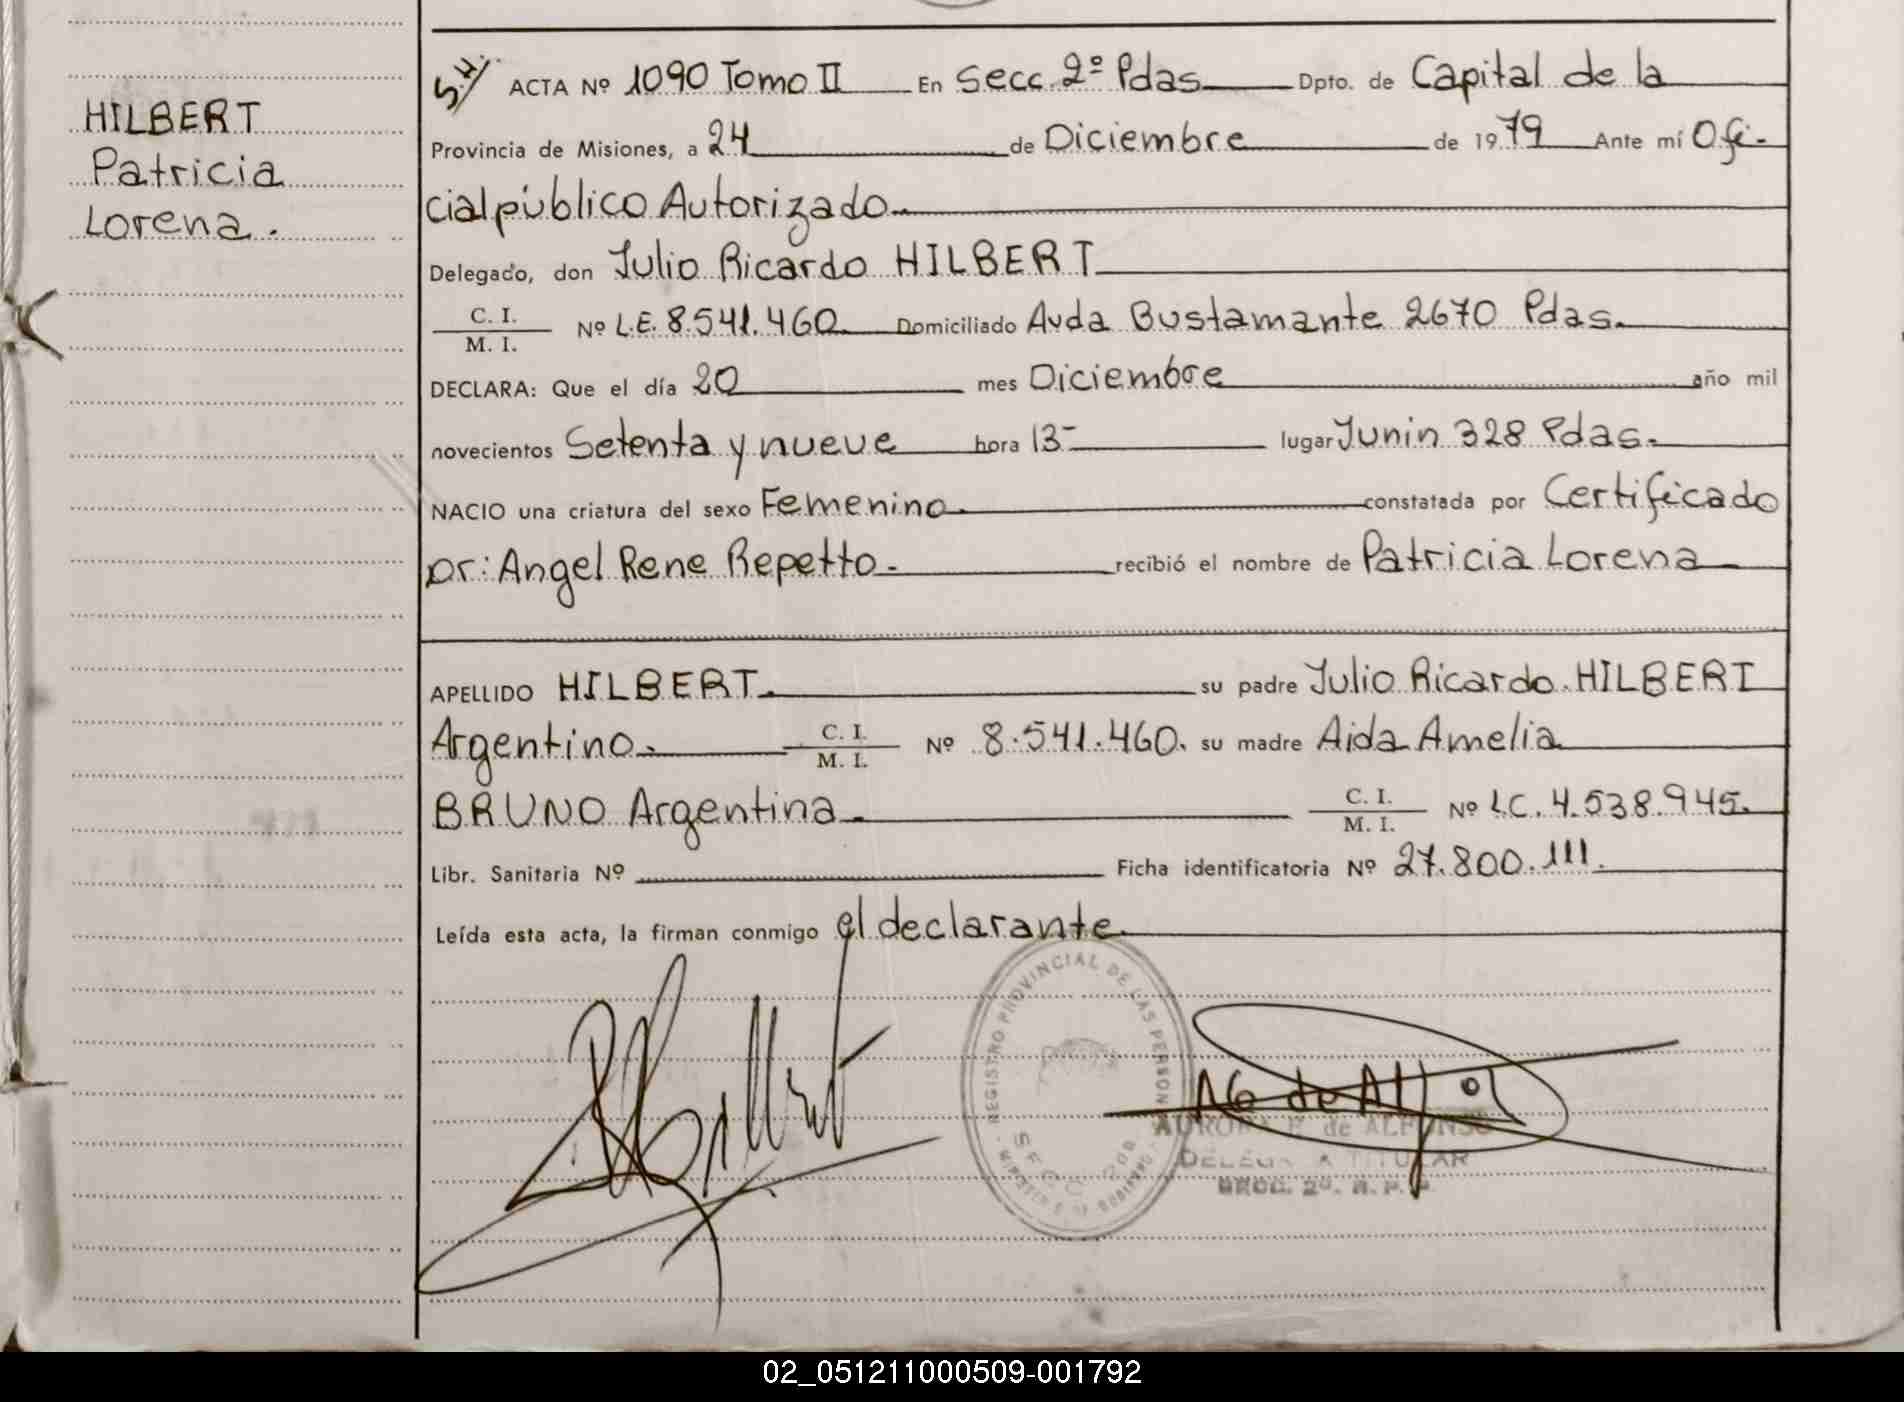 HILBERT
Patricia
Lorena.
ACTA Nº 1090 Tomo II En Secc. 2º Pdas Dpto. de Capital de la
Provincia de Misiones, a 24 de Diciembre de 1979 Ante mí Ofi-
cial público Autorizado
Delegado, don Julio Ricardo HILBERT
C. I.
M. I. Nº L.E. 8.541.460 Domiciliado Avda Bustamante 2670 Pdas.
DECLARA: Que el día 20 mes Diciembre año mil
novecientos Setenta y nueve hora 13- lugar Junin 328 Pdas.
NACIO una criatura del sexo Femenino constatada por Certificado
Dr: Angel Rene Repetto. recibió el nombre de Patricia Lorena
APELLIDO HILBERT. su padre Julio Ricardo HILBERT
Argentino. C. I. M. I. Nº 8.541.460. su madre Aida Amelia
BRUNO Argentina. C. I. M. I. Nº L.C. 4.538.945.
Libr. Sanitaria Nº Ficha identificatoria Nº 27.800.111.
Leída esta acta, la firman conmigo el declarante.
REGISTRO PROVINCIAL DE LAS PERSONAS
SECC.
de ALFONSO
TITULAR
SECC. 2º. R. P. P.
02_051211000509-001792